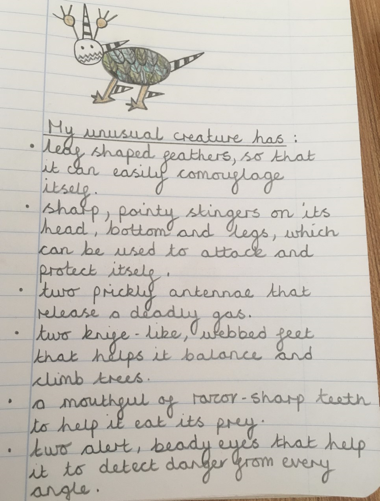 My unusual creature has :
• leaf shaped feathers, so that
it can easily comouflage
itself.
• sharp, pointy stingers on its
head, bottom and legs, which
can be used to attack and
protect itself.
• two prickly antennae that
release a deadly gas.
• two knife-like, webbed feet
that helps it balance and
climb trees.
• a mouthful of razor-sharp teeth
to help it eat its prey.
• two alert, beady eyes that help
it to detect danger from every
angle.